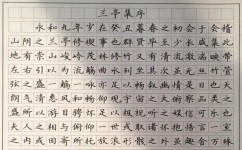 兰亭集序
永和九年岁在癸丑暮春之初会于会稽
山阴之兰亭修禊事也群贤毕至少长咸集此
地有崇山峻岭茂林修竹又有清流激湍映带
左右引以为流觞曲水列坐其次虽无丝竹管弦
之盛一觞一咏亦足以畅叙幽情是日也天
朗气清惠风和畅仰观宇宙之大俯察品类之
盛所以游目骋怀足以极视听之娱信可乐也
夫人之相与俯仰一世或取诸怀抱悟言一室
之内或因寄所托放浪形骸之外虽趣舍